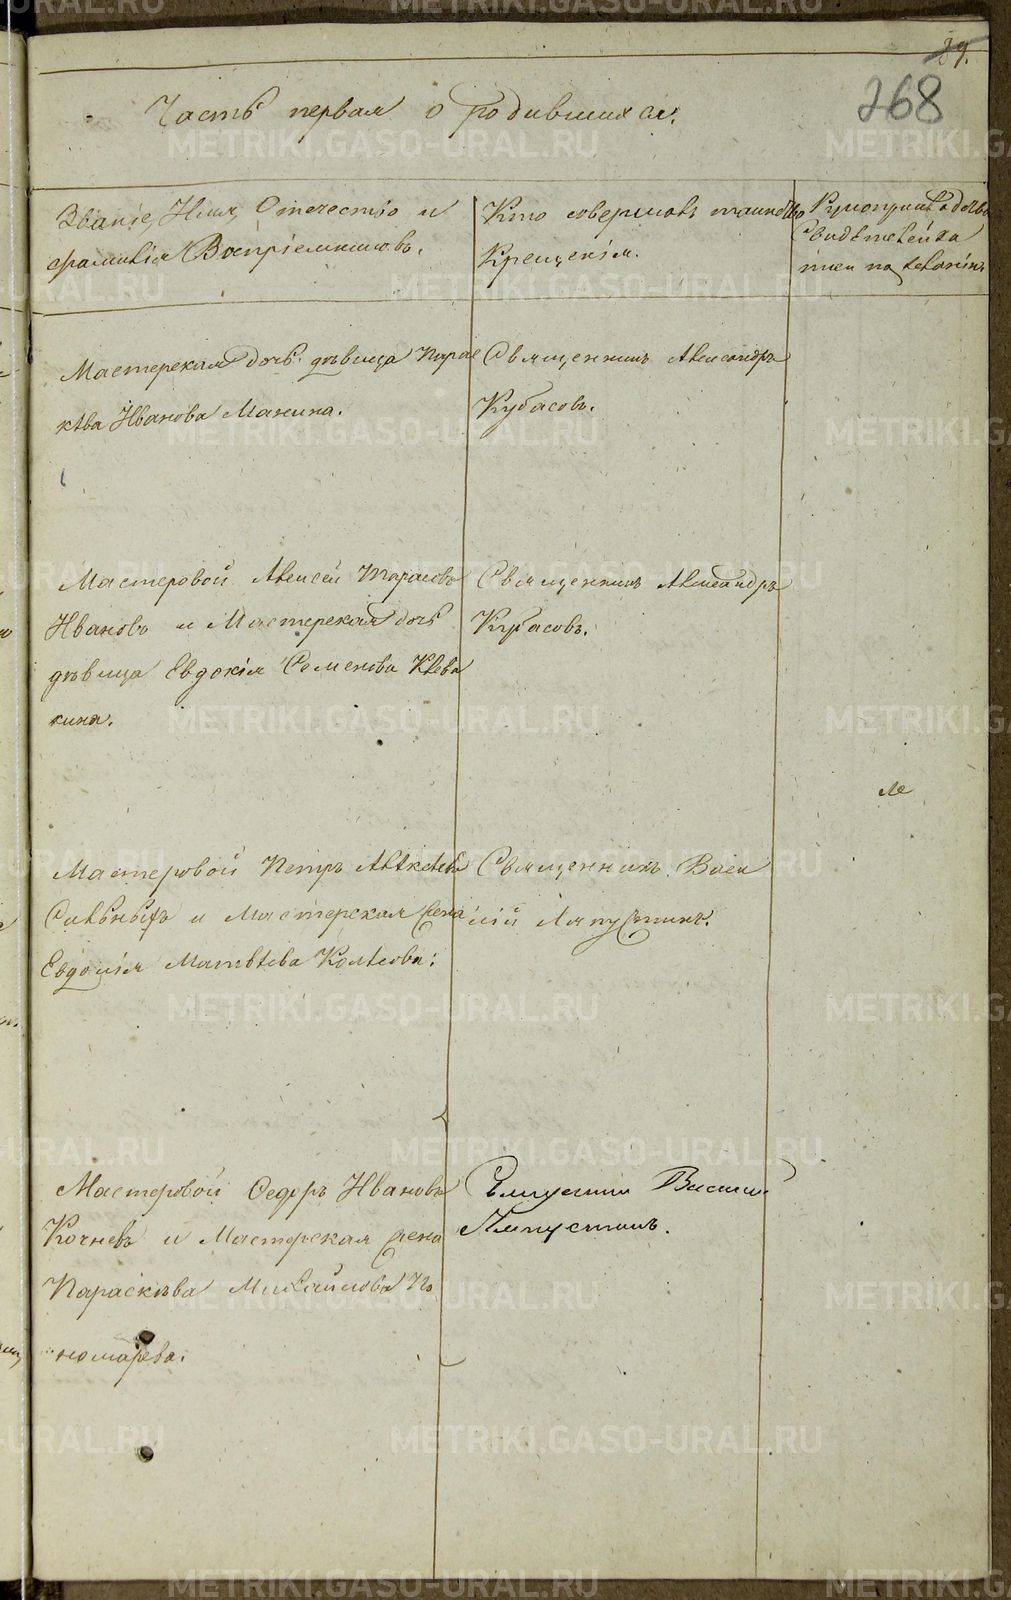 89.
268
Часть первая о родившихся.
Званіе, Имя, Отчество и
фамилія Воспріемниковъ.
Кто совершалъ таинство
Крещенія.
Рукоприкладство
Свидѣтелей за
писи по желанію
Мастерская дочь дѣвица Парас
кѣва Иванова Макина.
Священникъ Александръ
Кубасовъ.
Мастеровой Алексей Тарасовъ
Ивановъ и Мастерская дочь
дѣвица Евдокія Семенова Клева
кина.
Священникъ Александръ
Кубасовъ.
Мастеровой Петръ
и Мастерская жена
Евдокія Матвѣева Колясова.
Священникъ Васи
лій Ляпустинъ.
Мастеровой Федоръ Ивановъ
Кочневъ и Мастерская жена
Параскѣва Михайлова По
номарева.
Священникъ Василій
Ляпустинъ.
METRIKI.GASO-URAL.RU